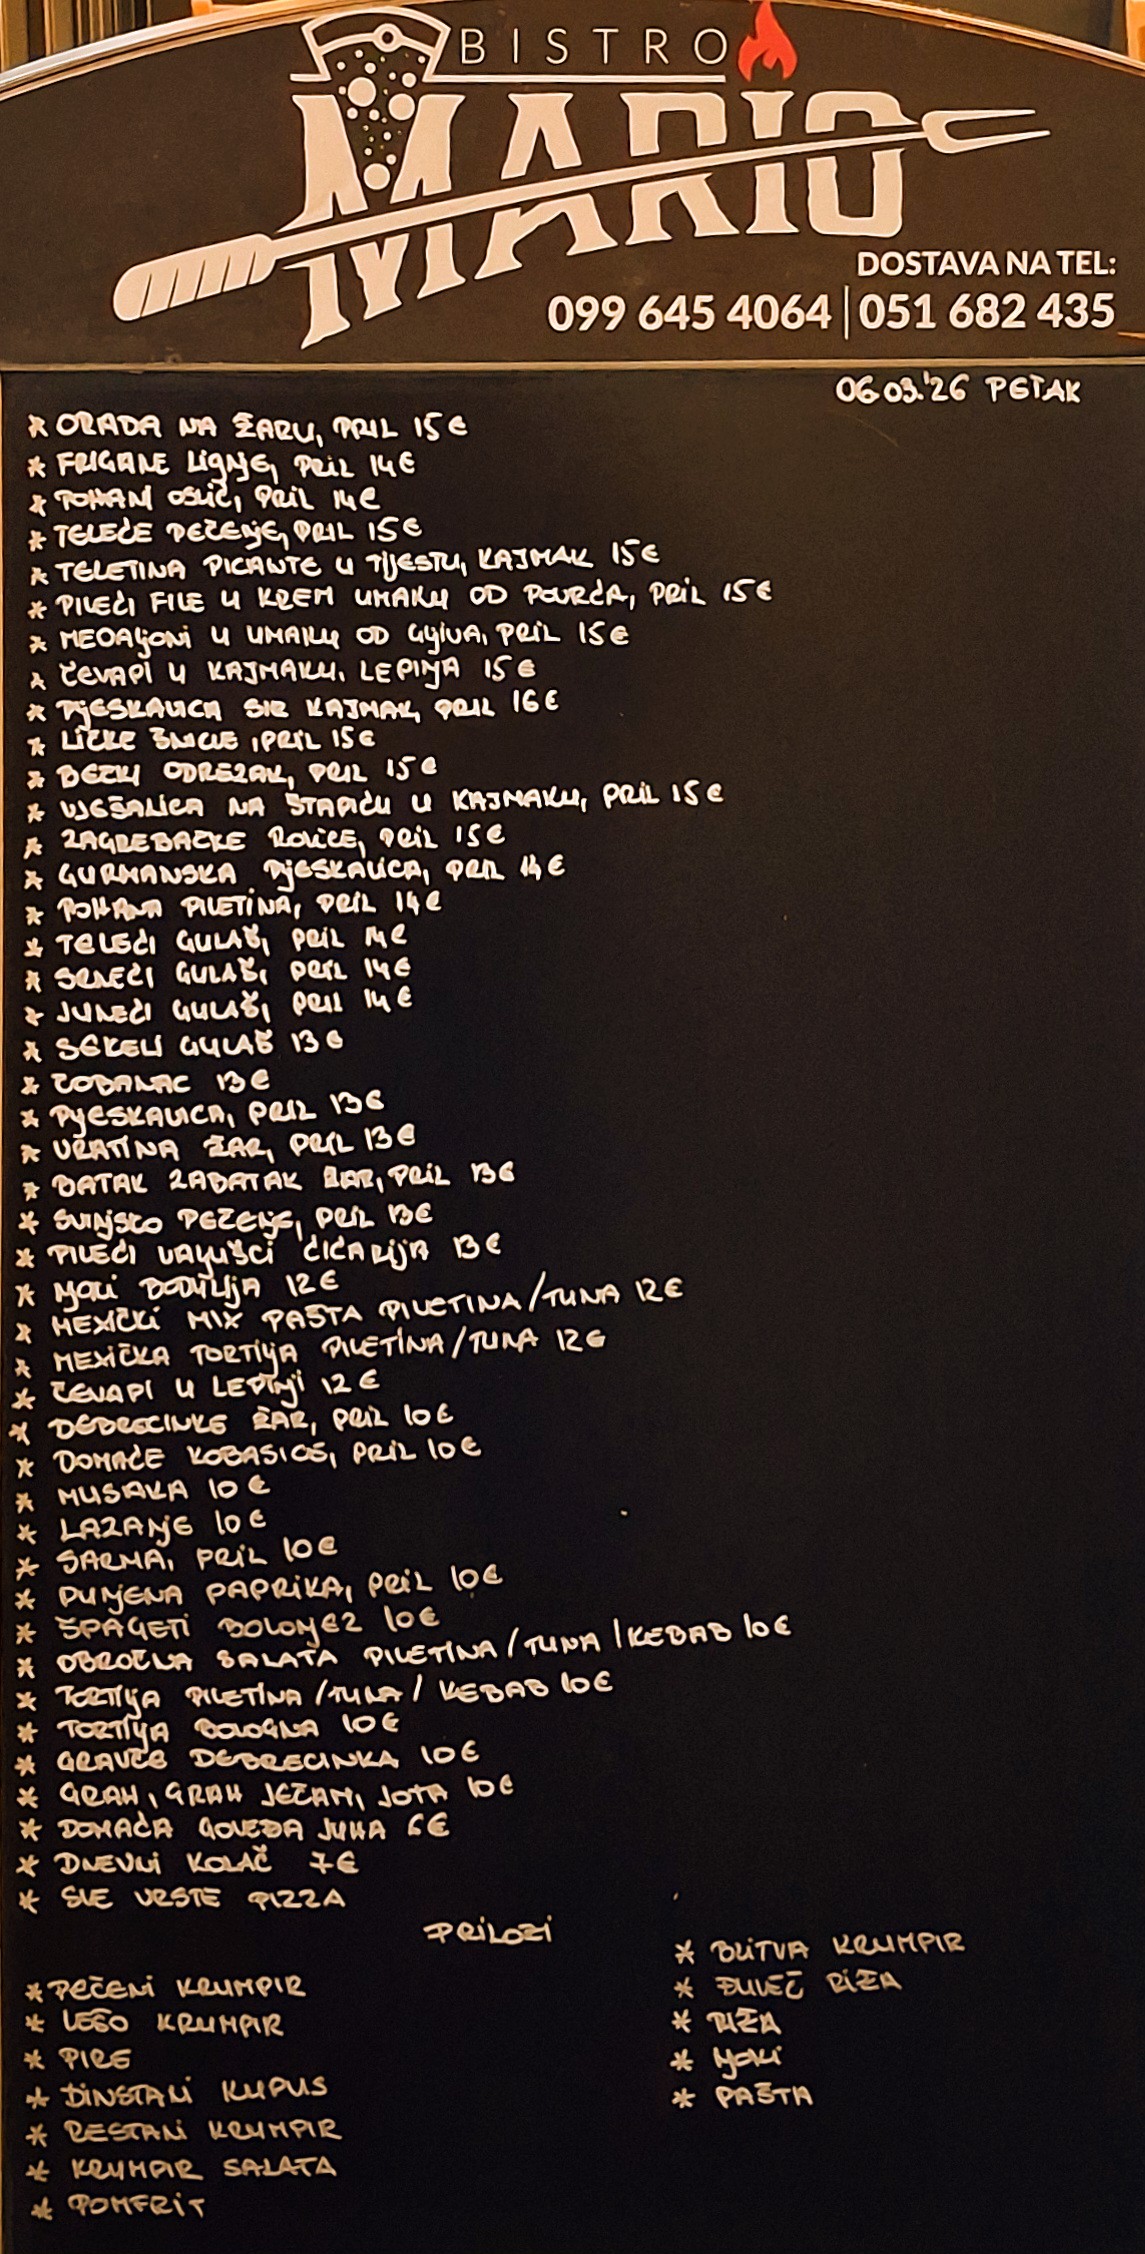 BISTRO
MARIO
DOSTAVA NA TEL:
099 645 4064 | 051 682 435
06.03.'26 PETAK
* ORADA NA ŽARU, PRIL 15€
* FRIGANE LIGNJE, PRIL 14€
* POHANI OSLIĆ, PRIL 14€
* TELEĆE PEČENJE, PRIL 15€
* TELETINA PICANTE U TIJESTU, KAJMAK 15€
* PILEĆI FILE U KREM UMAKU OD POVRĆA, PRIL 15€
* MEDALJONI U UMAKU OD GLJIVA, PRIL 15€
* ČEVAPI U KAJMAKU, LEPINJA 15€
* PLJESKAVICA SIR KAJMAK, PRIL 16€
* LIČKE ŠNICLE, PRIL 15€
* BEČKI ODREZAK, PRIL 15€
* VJEŠALICA NA ŠTAPIĆU U KAJMAKU, PRIL 15€
* ZAGREBAČKE ROLICE, PRIL 15€
* GURMANSKA PLJESKAVICA, PRIL 14€
* POHANA PILETINA, PRIL 14€
* TELEĆI GULAŠ, PRIL 14€
* SRNEĆI GULAŠ, PRIL 14€
* JUNEĆI GULAŠ, PRIL 14€
* SEKELI GULAŠ 13€
* ČOBANAC 13€
* PLJESKAVICA, PRIL 13€
* VRATINA ŽAR, PRIL 13€
* BATAK ZABATAK ŽAR, PRIL 13€
* SVINJSKO PEČENJE, PRIL 13€
* PILEĆI VALJUŠCI ĆIĆARIJA 13€
* NJOKI BODULIJA 12€
* MEXIČKI MIX PAŠTA PILETINA/TUNA 12€
* MEXIČKA TORTILJA PILETINA/TUNA 12€
* ČEVAPI U LEPINJI 12€
* DEBRECINKE ŽAR, PRIL 10€
* DOMAĆE KOBASICE, PRIL 10€
* MUSAKA 10€
* LAZANJE 10€
* SARMA, PRIL 10€
* PUNJENA PAPRIKA, PRIL 10€
* ŠPAGETI BOLONJEZ 10€
* OBROČNA SALATA PILETINA/TUNA/KEBAB 10€
* TORTILJA PILETINA/TUNA/KEBAB 10€
* TORTILJA BOLOGNA 10€
* GRAVČE DEBRECINKA 10€
* GRAH, GRAH JEČAM, JOTA 10€
* DOMAĆA GOVEĐA JUHA 6€
* DNEVNI KOLAČ 7€
* SVE VRSTE PIZZA
PRILOZI
* PEČENI KRUMPIR
* LEŠO KRUMPIR
* PIRE
* DINSTANI KUPUS
* RESTANI KRUMPIR
* KRUMPIR SALATA
* POMFRIT
* BLITVA KRUMPIR
* ĐUVEČ RIŽA
* RIŽA
* NJOKI
* PAŠTA